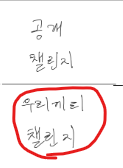 공개
챌린지
우리끼리
챌린지